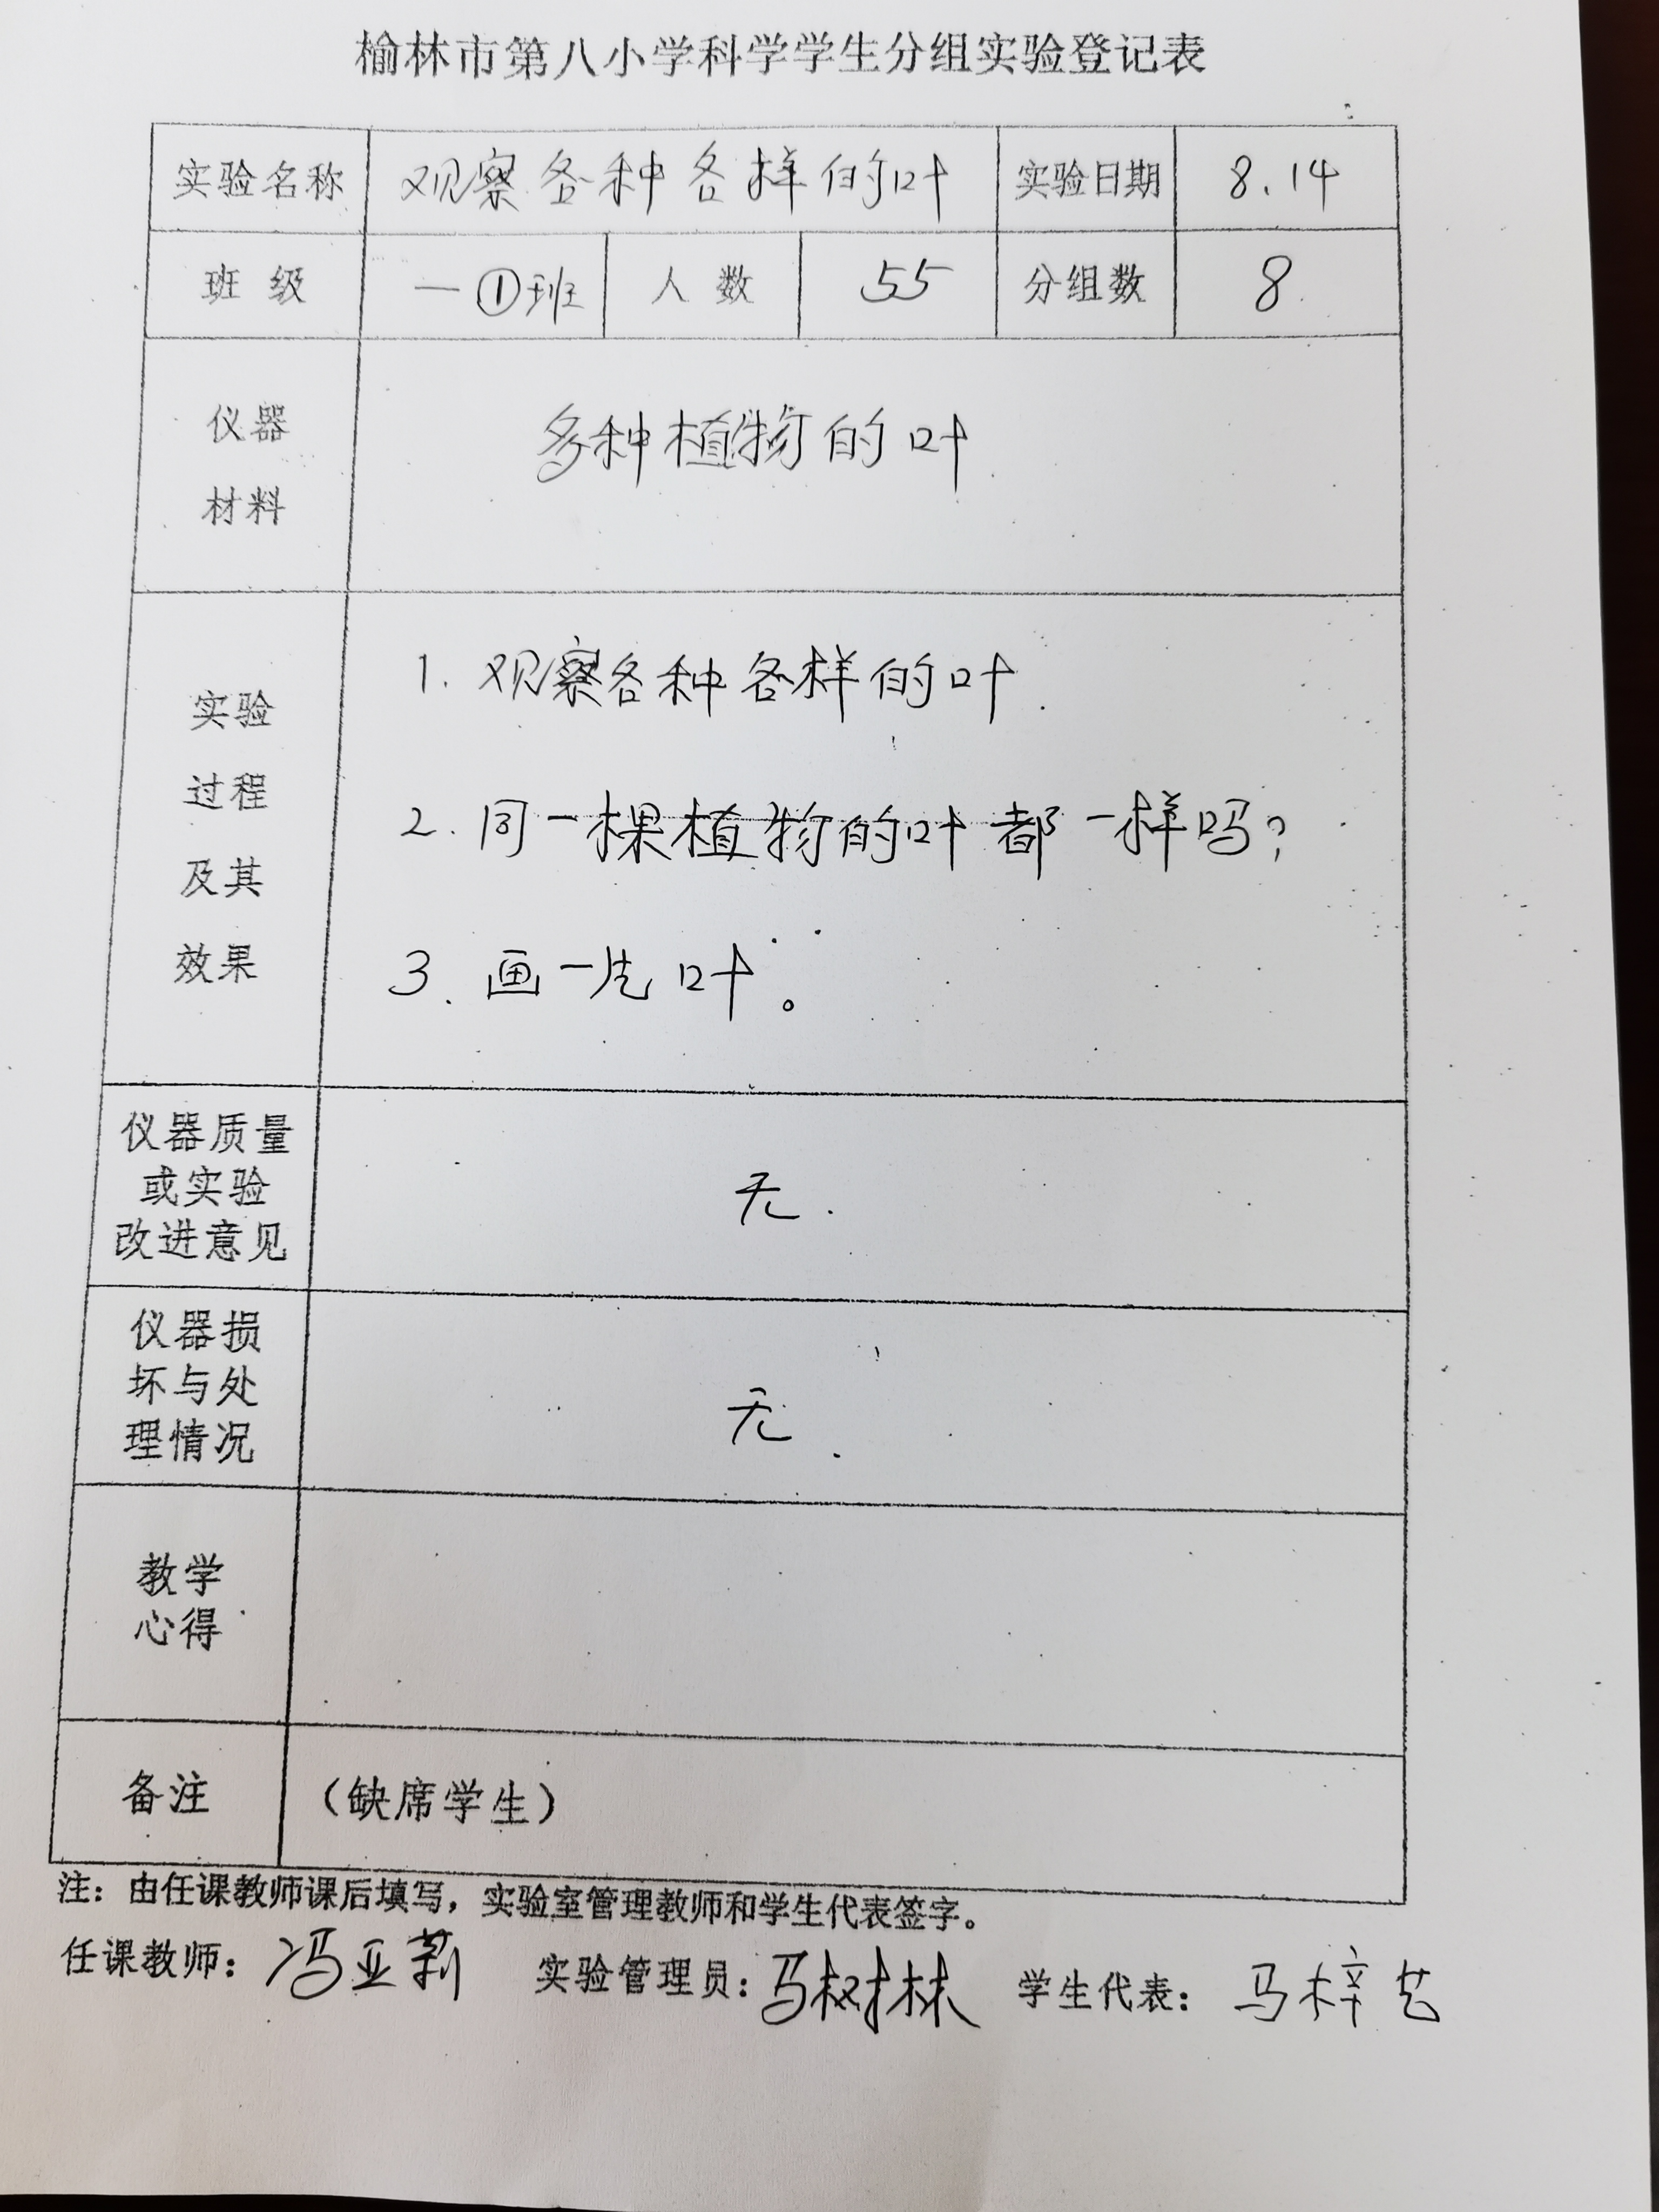 榆林市第八小学科学学生分组实验登记表
实验名称 观察各种各样的叶 实验日期 8.14
班级 一①班 人数 55 分组数 8
仪器
材料
多种植物的叶
实验
过程
及其
效果
1. 观察各种各样的叶.
2. 同一棵植物的叶都一样吗?
3. 画一片叶。
仪器质量
或实验
改进意见
无.
仪器损
坏与处
理情况
无.
教学
心得
备注 (缺席学生)
注：由任课教师课后填写，实验室管理教师和学生代表签字。
任课教师：冯亚莉 实验管理员：马树林 学生代表：马梓艺